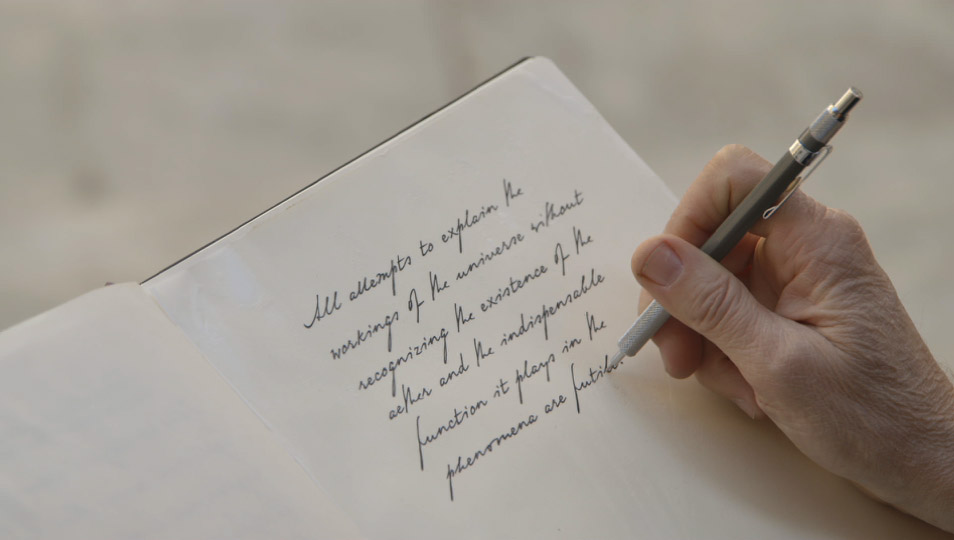 All attempts to explain the
workings of the universe without
recognizing the existence of the
aether and the indispensable
function it plays in the
phenomena are futile.